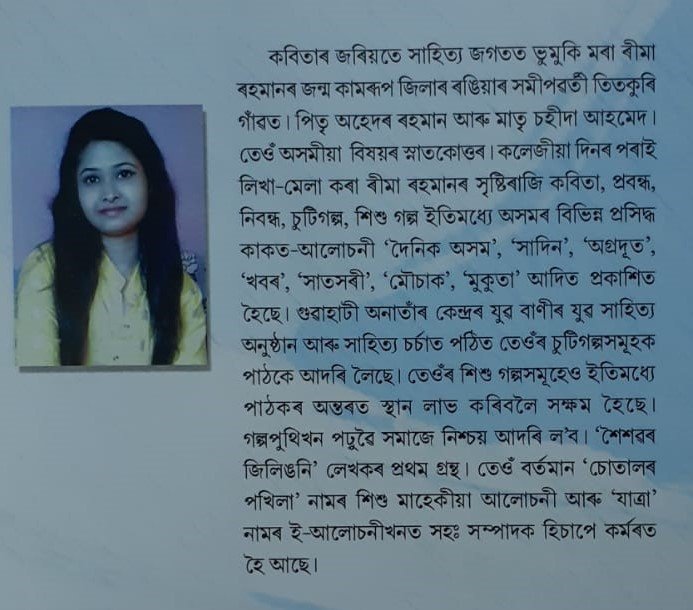 কবিতাৰ জৰিয়তে সাহিত্য জগতত ভুমুকি মৰা ৰীমা
ৰহমানৰ জন্ম কামৰূপ জিলাৰ ৰঙিয়াৰ সমীপৱৰ্তী তিতকুৰি
গাঁৱত। পিতৃ অহেদৰ ৰহমান আৰু মাতৃ চহীদা আহমেদ।
তেওঁ অসমীয়া বিষয়ৰ স্নাতকোত্তৰ। কলেজীয়া দিনৰ পৰাই
লিখা-মেলা কৰা ৰীমা ৰহমানৰ সৃষ্টিৰাজি কবিতা, প্ৰবন্ধ,
নিবন্ধ, চুটিগল্প, শিশু গল্প ইতিমধ্যে অসমৰ বিভিন্ন প্ৰসিদ্ধ
কাকত-আলোচনী ‘দৈনিক অসম’, ‘সাদিন’, ‘অগ্ৰদূত’,
‘খবৰ’, ‘সাতসৰী’, ‘মৌচাক’, ‘মুকুতা’ আদিত প্ৰকাশিত
হৈছে। গুৱাহাটী অনাতাঁৰ কেন্দ্ৰৰ যুৱ বাণীৰ যুৱ সাহিত্য
অনুষ্ঠান আৰু সাহিত্য চৰ্চাত পঠিত তেওঁৰ চুটিগল্পসমূহক
পাঠকে আদৰি লৈছে। তেওঁৰ শিশু গল্পসমূহেও ইতিমধ্যে
পাঠকৰ অন্তৰত স্থান লাভ কৰিবলৈ সক্ষম হৈছে।
গল্পপুথিখন পঢ়ুৱৈ সমাজে নিশ্চয় আদৰি ল’ব। ‘শৈশৱৰ
জিলিঙনি’ লেখকৰ প্ৰথম গ্ৰন্থ। তেওঁ বৰ্তমান ‘চোতালৰ
পখিলা’ নামৰ শিশু মাহেকীয়া আলোচনী আৰু ‘যাত্ৰা’
নামৰ ই-আলোচনীখনত সহঃ সম্পাদক হিচাপে কৰ্মৰত
হৈ আছে।